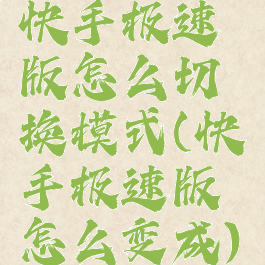 快手极速
版怎么切
换模式(快
手极速版
怎么变成)